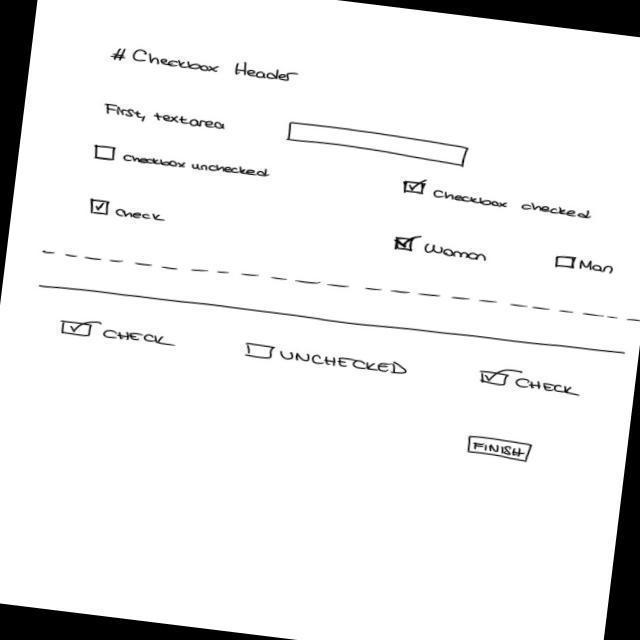 # Checkbox Header
First, textarea
checkbox unchecked
Checkbox checked
check
Woman
Man
CHECK
UNCHECKED
CHECK
FINISH